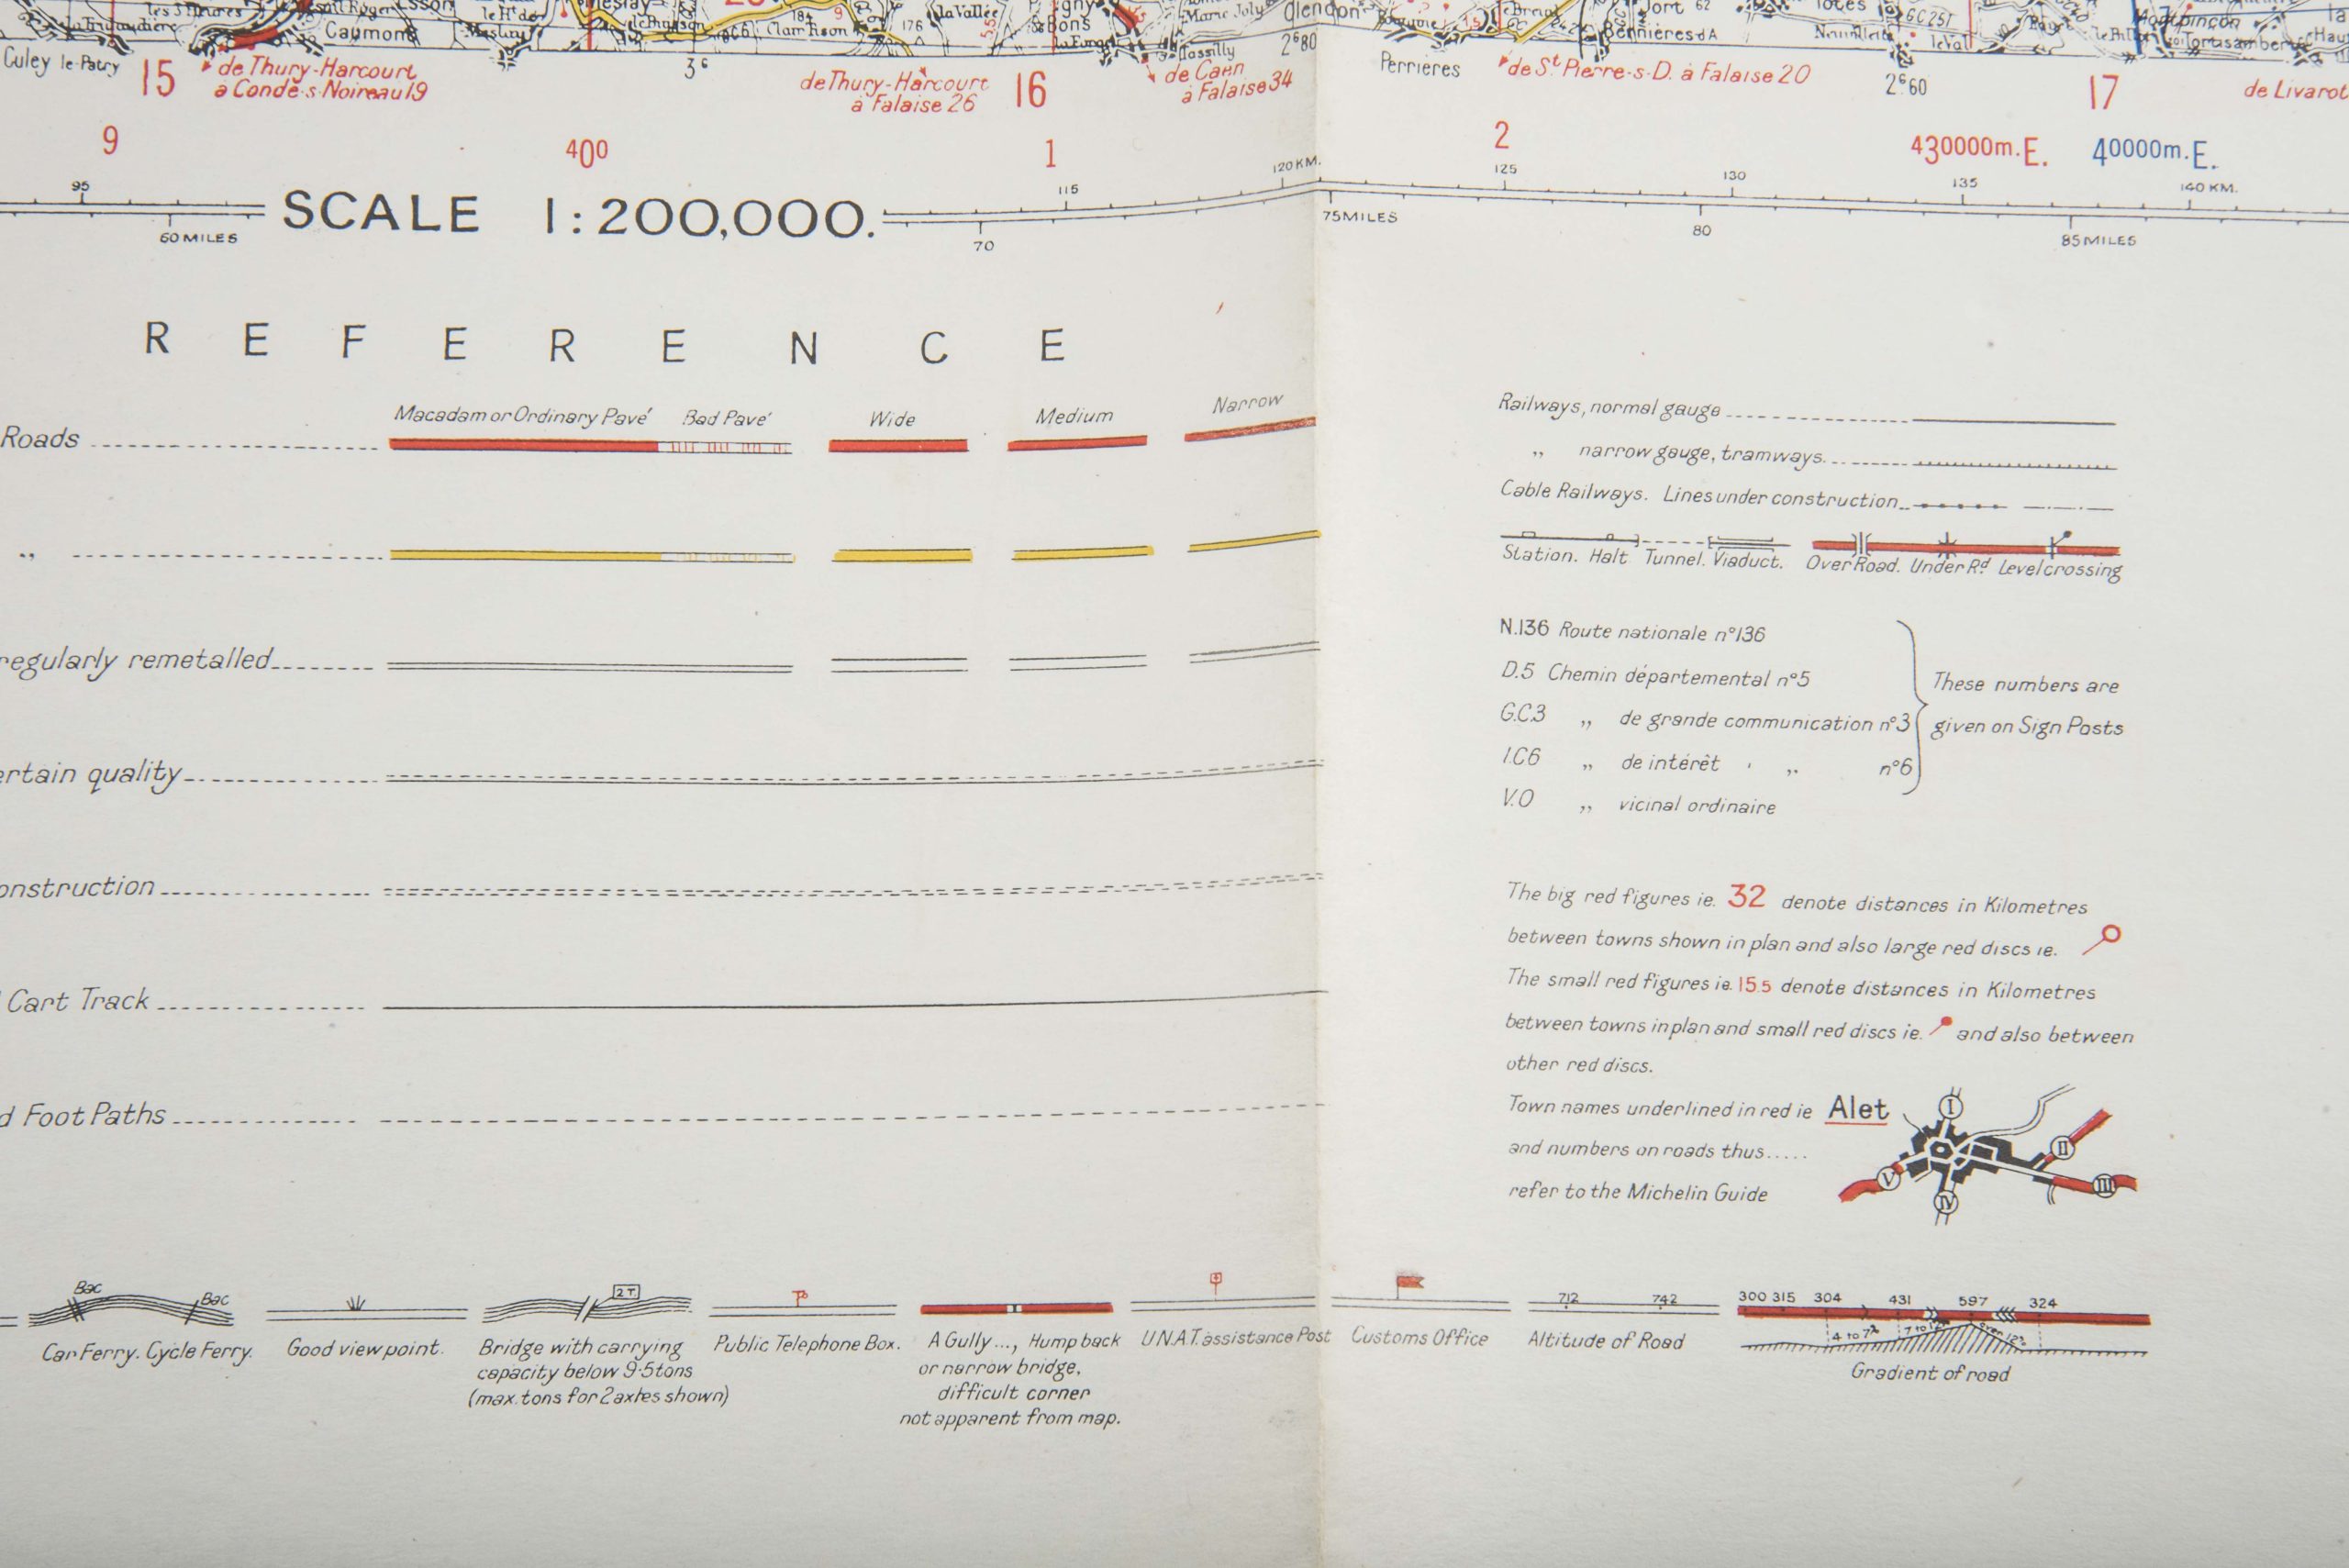 les 3 Maries
Caumont
la Vallée
Bons
Marie Joly
Glendon
Tassilly
2⁶80
Bernières-d'A
GC251
Tortisambert
Culey le-Patry
15
de Thury-Harcourt
à Condé-s-Noireau 19
3⁶
de Thury-Harcourt
à Falaise 26
16
de Caen
à Falaise 34
Perrières
de Sᵗ Pierre-s-D. à Falaise 20
2⁶60
17
de Livarot
9
400
1
2
430000m.E.
40000m.E.
95
115
120 KM.
125
130
135
140 KM.
SCALE 1:200,000.
60 MILES
70
75 MILES
80
85 MILES
REFERENCE
Macadam or Ordinary Pavé
Bad Pavé
Wide
Medium
Narrow
Roads
"
regularly remetalled
ertain quality
onstruction
Cart Track
d Foot Paths
Railways, normal gauge
" narrow gauge, tramways.
Cable Railways. Lines under construction
Station. Halt Tunnel. Viaduct. Over Road. Under Rᵈ Level crossing
N.136 Route nationale n°136
D.5 Chemin départemental n°5
G.C.3 " de grande communication n°3
I.C6 " de intérêt " n°6
V.O " vicinal ordinaire
These numbers are
given on Sign Posts
The big red figures ie. 32 denote distances in Kilometres
between towns shown in plan and also large red discs ie.
The small red figures ie. 15.5 denote distances in Kilometres
between towns in plan and small red discs ie. and also between
other red discs.
Town names underlined in red ie Alet
and numbers on roads thus.....
refer to the Michelin Guide
I
II
III
IV
V
Bac
Bac
Car Ferry. Cycle Ferry.
Good view point.
2 T.
Bridge with carrying
capacity below 9·5 tons
(max. tons for 2 axles shown)
Public Telephone Box.
A Gully ..., Hump back
or narrow bridge,
difficult corner
not apparent from map.
U.N.A.T. assistance Post
Customs Office
712
742
Altitude of Road
300 315 304 431 597 324
4 to 7% 7 to 12% over 12%
Gradient of road